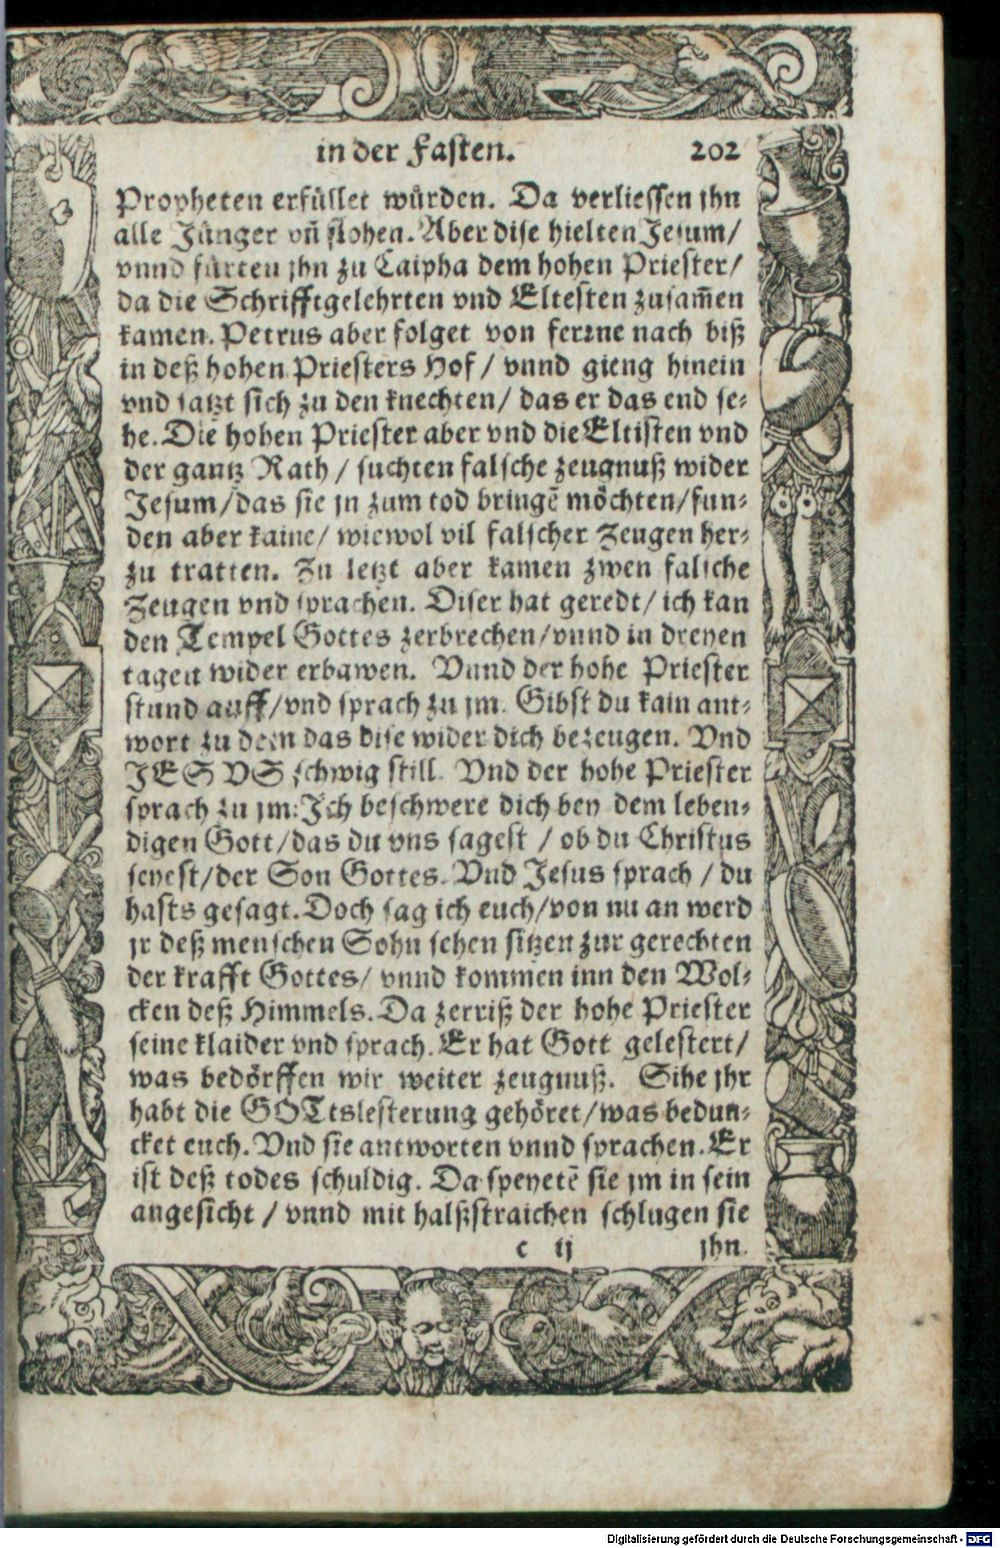 in der Fasten. 202
Propheten erfüllet würden. Da verliessen jhn
alle Jünger vñ flohen. Aber dise hielten Jesum/
vnnd fürten jhn zu Caipha dem hohen Priester/
da die Schrifftgelehrten vnd Eltesten zusam̄en
kamen. Petrus aber folget von ferrne nach biß
in deß hohen Priesters Hof / vnnd gieng hinein
vnd satzt sich zu den knechten/ das er das end se-
he. Die hohen Priester aber vnd die Eltisten vnd
der gantz Rath / suchten falsche zeugnuß wider
Jesum/das sie jn zum tod bringē möchten/fun-
den aber kaine/ wiewol vil falscher Zeugen her-
zu tratten. Zu letzt aber kamen zwen falsche
Zeugen vnd sprachen. Diser hat geredt/ ich kan
den Tempel Gottes zerbrechen/vnnd in dreyen
tagen wider erbawen. Vnnd der hohe Priester
stund auff/vnd sprach zu jm. Gibst du kain ant-
wort zu dem das dise wider dich bezeugen. Vnd
JESVS schwig still. Vnd der hohe Priester
sprach zu jm: Jch beschwere dich bey dem leben-
digen Gott/das du vns sagest / ob du Christus
seyest/der Son Gottes. Vnd Jesus sprach / du
hasts gesagt. Doch sag ich euch/von nu an werd
jr deß menschen Sohn sehen sitzen zur gerechten
der krafft Gottes/ vnnd kommen inn den Wol-
cken deß Himmels. Da zerriß der hohe Priester
seine klaider vnd sprach. Er hat Gott gelestert/
was bedörffen wir weiter zeugnuß. Sihe jhr
habt die GOTtslesterung gehöret/was bedun-
cket euch. Vnd sie antworten vnnd sprachen. Er
ist deß todes schuldig. Da speyetē sie jm in sein
angesicht / vnnd mit halßstraichen schlugen sie
c ij jhn.
Digitalisierung gefördert durch die Deutsche Forschungsgemeinschaft - DFG